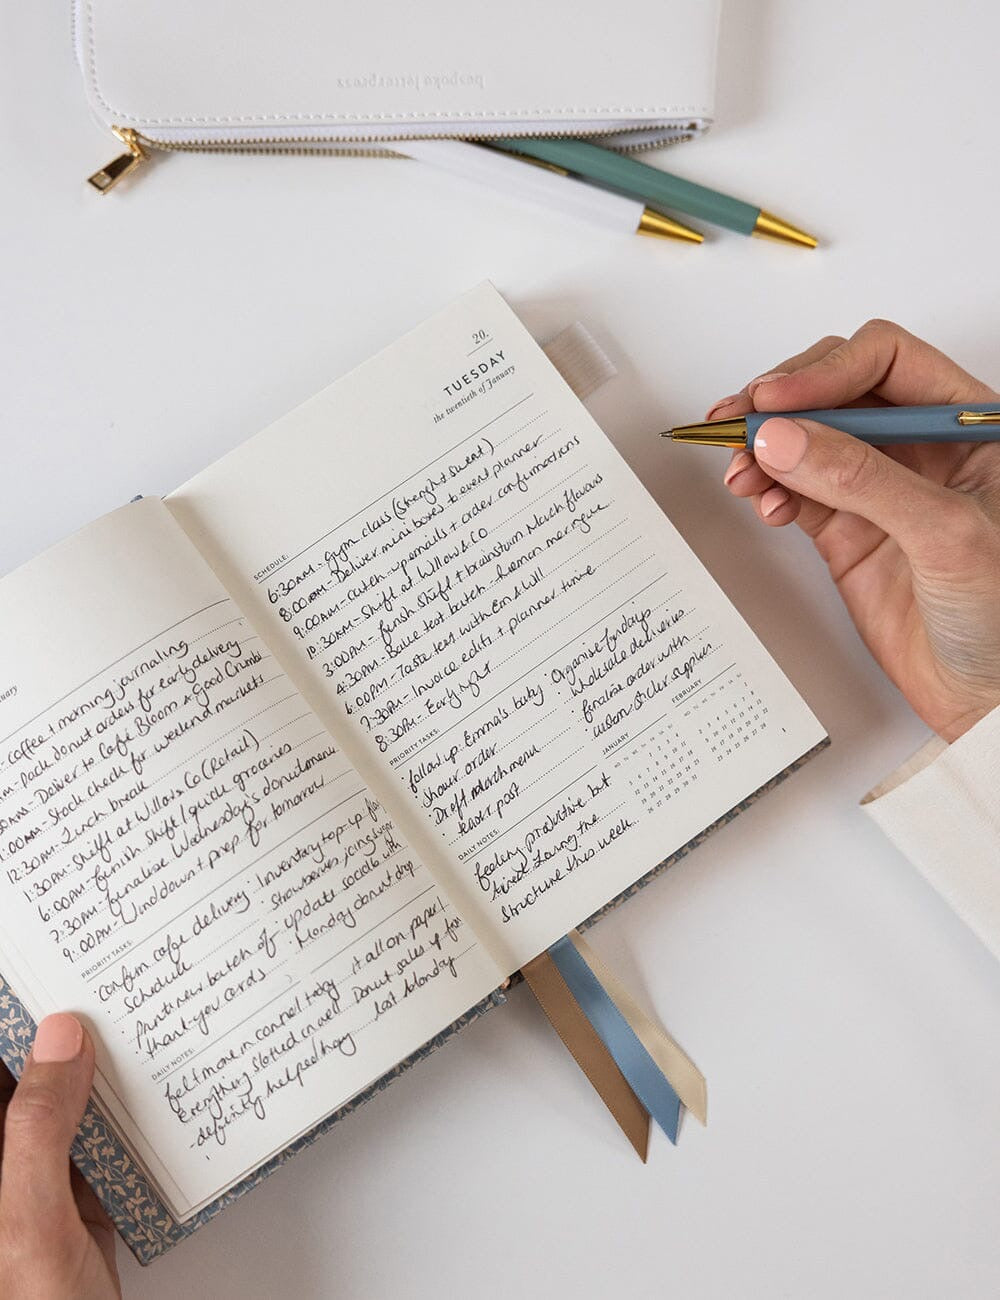 bespoke letterpress
uary
- coffee + morning journaling
AM - Pack donut orders for early delivery
AM - Deliver to Café Bloom + Good Crumb
1:00AM - Stock check for weekend markets
12:30AM - Lunch break
1:30AM - Shift at Willow & Co (Retail)
6:00AM - Finish shift / quick groceries
7:30AM - Finalise Wednesday's donut menu
9:00AM - Wind down + prep for tomorrow
PRIORITY TASKS:
· confirm cafe delivery schedule
· Print new batch of thank you cards
· Inventory top-up
strawberries, icing sugar
· update socials with
Monday donut drop
DAILY NOTES:
felt more in control today
Everything slotted in well
- definitely helped having
it all on paper!
Donut sales up from
last Monday
20.
TUESDAY
the twentieth of January
SCHEDULE:
6:30AM - Gym class (Strenght + sweat)
8:00AM - Deliver mini boxes to event planner
9:00AM - Catch-up emails + order confirmations
10:30AM - Shift at Willow & Co
3:00AM - finish shift + brainstorm March flavours
4:30AM - Bake test batch - lemon meringue
6:00PM - Taste test with Em & Will
7:30PM - Invoice edits + planner time
8:30PM - Early night
PRIORITY TASKS:
· follow up Emma's baby
shower order
· Draft March menu
·
· Organise fridays
wholesale deliveries
· finalise order with
sticker supplier
DAILY NOTES:
feeling productive but
tired. Loving the
structure this week..
JANUARY
FEBRUARY